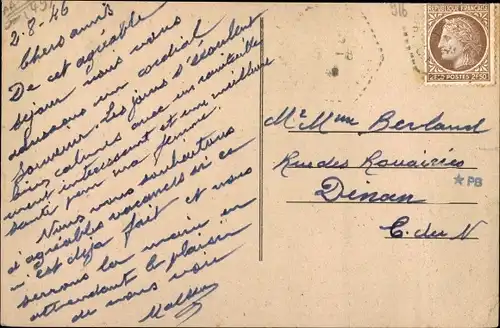 2-8-46
Chers amis
De cet agréable
séjour nous vous
adressons un cordial
souvenir. Les jours s'écoulent
bien calmes avec un ravitaille
ment intéressant et une meilleure
santé pour ma femme.
Nous vous souhaitons
d'agréables vacances si ce
n'est déjà fait et vous
serrons la main en
attendant le plaisir
de vous voir
RÉPUBLIQUE FRANÇAISE
POSTES 2F50
Mr Mme Berland
Rue des Rouairies
Dinan
C. du N
*PB